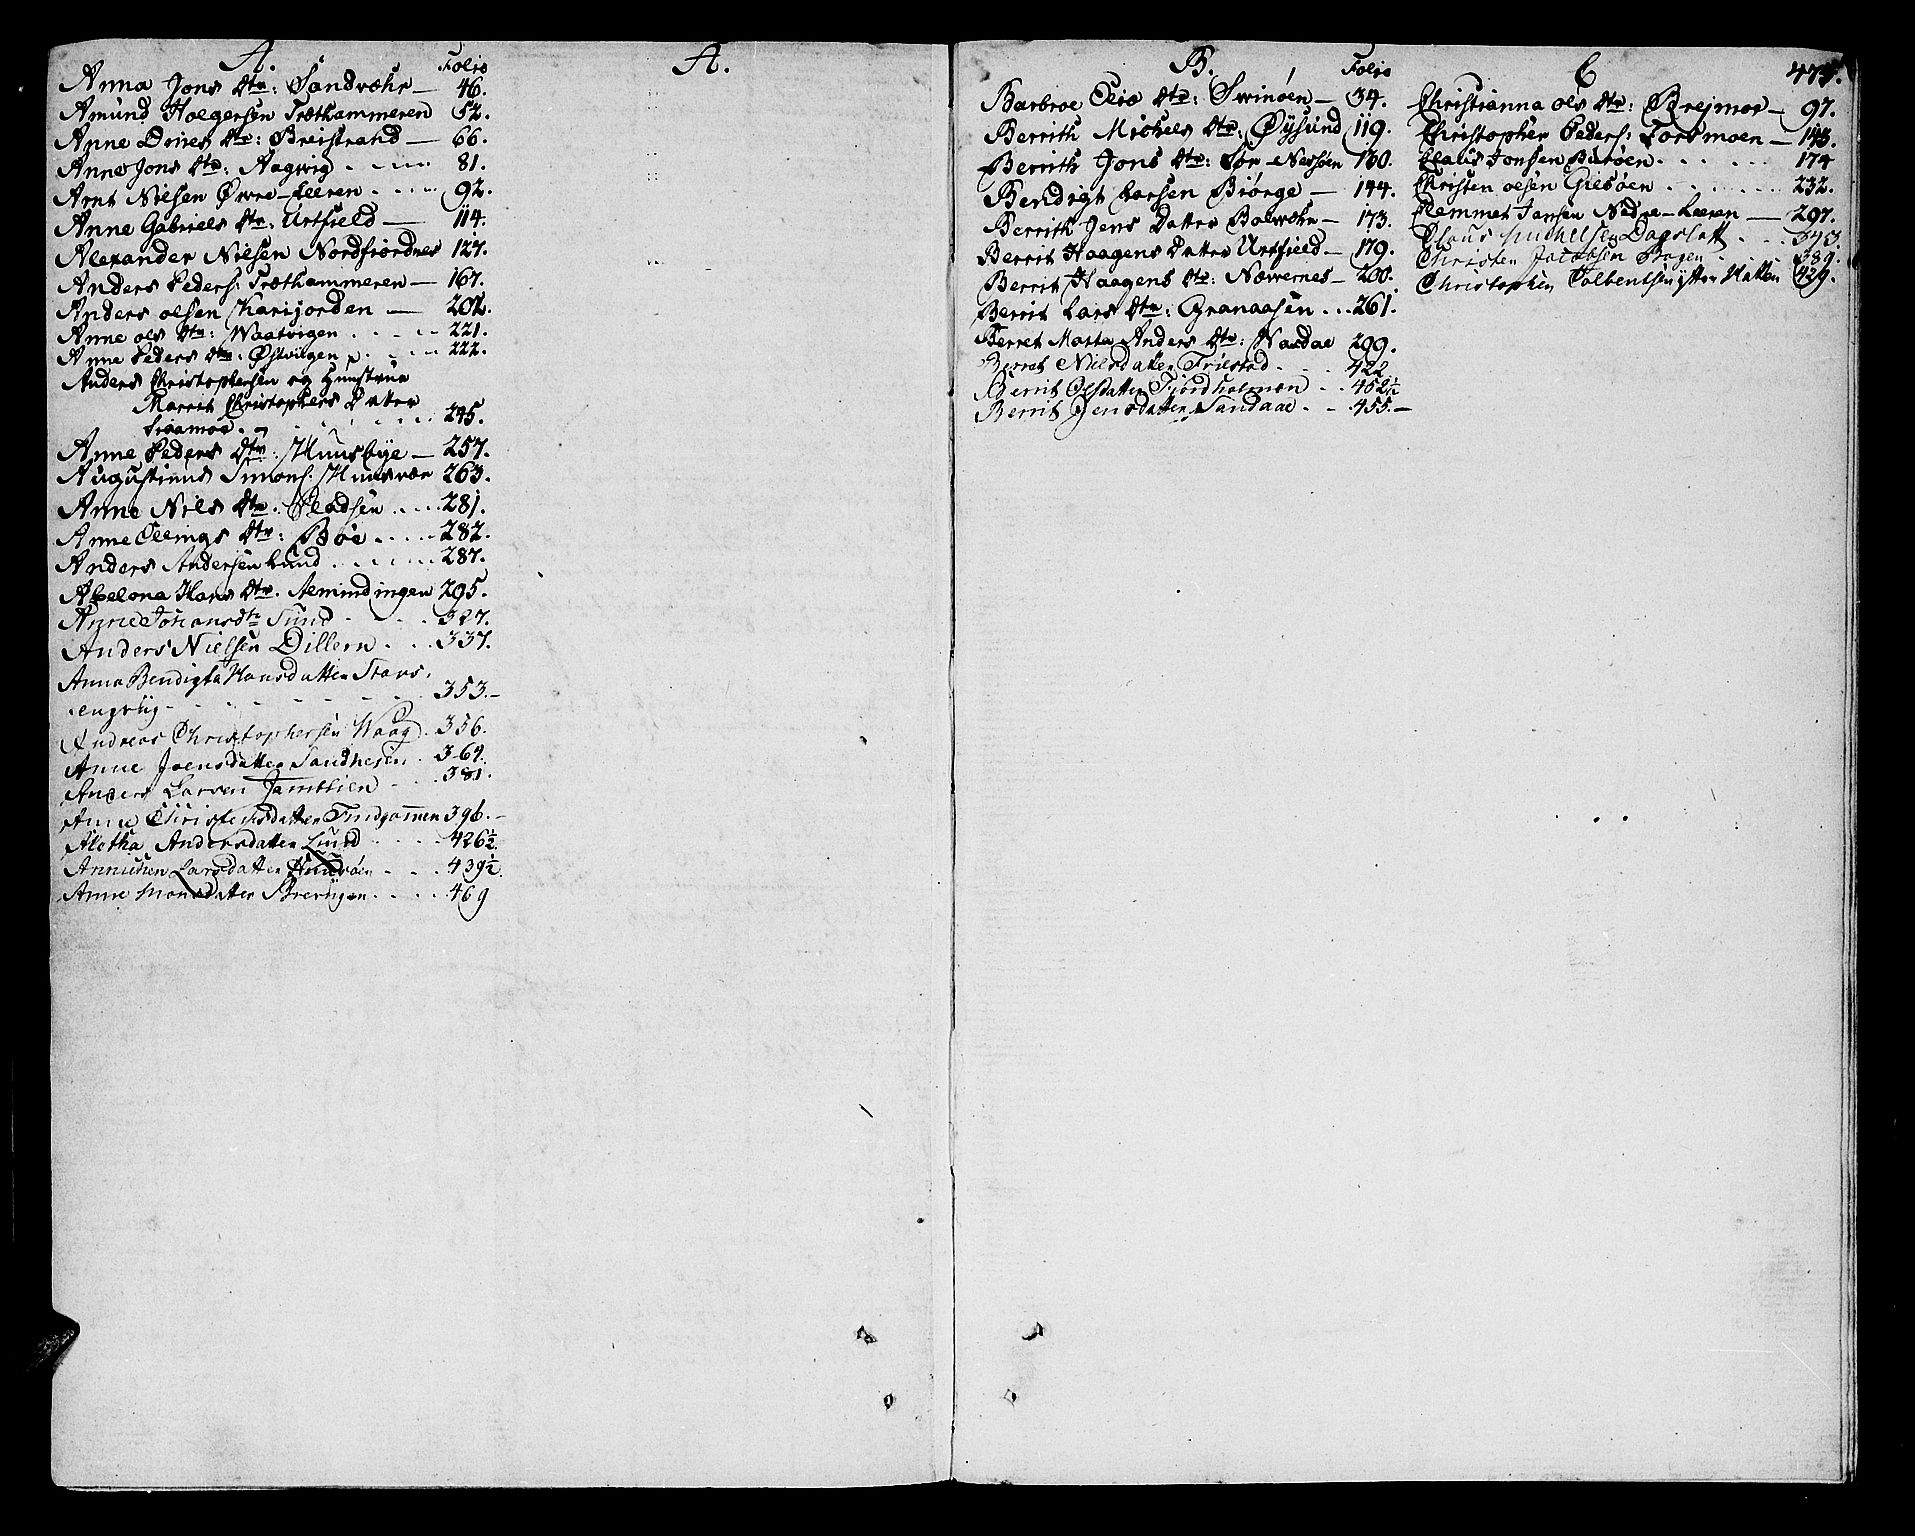 A.
Folio
Anna Jons Dtr: Sandvæhr — 46.
Amund Holgersen Træthammeren 52.
Anne Dines Dtr: Breistrand — 66.
Anne Jons Dtr: Aagvig . . . . 81.
Arnt Nielsen Øvre-Leeren . . . . 92.
Anne Gabriels Dtr: Urtfield — 114.
Alexander Nielsen Nordfiordnes 127.
Anders Peders: Træthammeren — 167.
Anders olsen Karijorden — 202.
Anne ols Dtr: Waatvigen . . . . 221.
Anne Peders Dtr: Østvigen . . . . 222.
Anders Christophersen og Hunstrue
Marrit Christophers Datter
. . . . 245.
Anne Peders Dtr: Huusbye — 257.
Augustinus Simons: Huusvær 263.
Anne Niels Dtr. Pladsen . . . . 281.
Anne Ellings Dtr: Bøe . . . . . 282.
Anders Andersen Lund . . . . . . 287.
Abelona Hans Dtr. Remindingen 295.
Anne Johansdtr Sund . . . . 327.
Anders Nielsen Dillern . . . 337.
Anna Bendigta Hansdatter Stavs,
engvig - . . . . . 353.-
Andreas Christophersen Waag . 356.
Anne Joensdatter Sandnesen . 364.
Anders Larsen Jamtlien - 381.
Anne Christensdatter Findgammen 396.-
Aletha Andersdatter Lund . . . . 426½
Annichen Larsdatter Hundøen . . . 439½.
Anne Monsdatter Brevigen . . . . 469
A.
B.
Folio
Barbroe Elis Dtr: Svinøen — 34.
Berrith Michels Dtr: Øysund 119.
Berrith Jons Dtr: Sør-Nessøen 130.
Bendigt Larsen Biørge — 144.
Berrith Jens Datter Bolværhr — 173.
Berrit Haagens Datter Urtfield — 179.
Berrit Haagens Dtr: Nævernes — 200.
Berrit Lars Dtr: Granaasen . . . 261.
Berret Marta Anders Dtr: Nasdae 299.
Berret Nielsdatter Friestad . . . . 422
Berrit Olsdatter Fjordholmen . . . 452½
Berrit Jensdatter Sandaae . . . 455.—
C
471.
Christianna ols Dtr: Brejmoe — 97.
Christopher Peders: Forsmoen — 143.
Claus Jonsen Burøen . . . . . . 174
Christen olsen Giesøen . . . . . . 232.
Clemmet Jansen Nedre-Leeren — 297.
Claus Michelsen Dagslatt . . . 343.
Christen Jacobsen Bogen . . . 389.
Christopher Tolbentsen ytter Hatten 429.